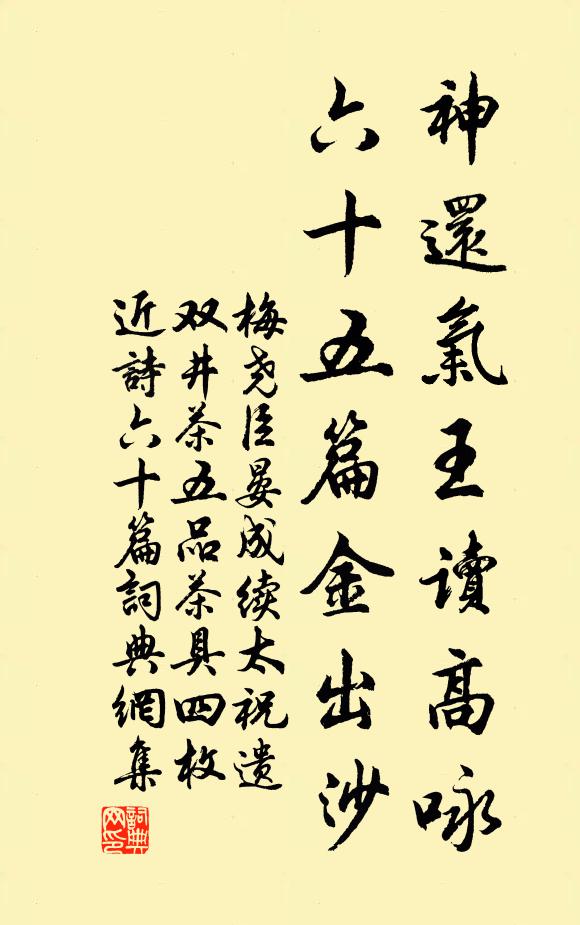 神還氣王讀高咏
六十五篇金出沙
梅尧臣晏成续太祝遗
双井茶五品茶具四枚
近詩六十篇詞典網集
詞典网印